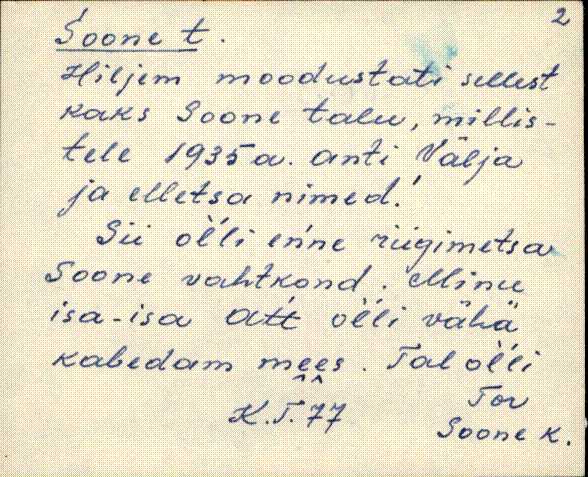 2
Soone t.
Hiljem moodustati sellest
kaks Soone talu, millis-
tele 1935 a. anti Välja
ja Metsa nimed.
Sii ol̀li en̕ne riigimetsa
Soone vahtkond. Minu
isa-isa At̕t ol̀li vähä
kabedam mees. Tal ol̀li
K.T. 77
Tor
Soone k.